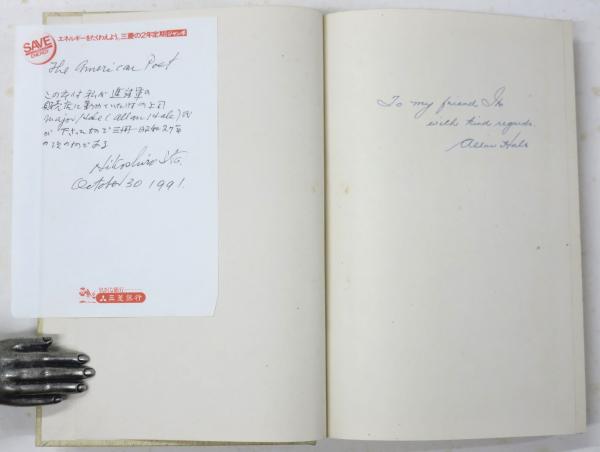 SAVE
ENERGY
エネルギーをたくわえよう。三菱の2年定期 ジャンボ
The American Poet
この本は私が進駐軍の
に勤めていた時の上司
Major Hale (Allan Hale) 氏
が下さったもので三冊 昭和27年
の次のものである
Hikoshiro Ito
October 30 1991.
三菱銀行
To my friend Ito
with kind regards.
Allan Hale